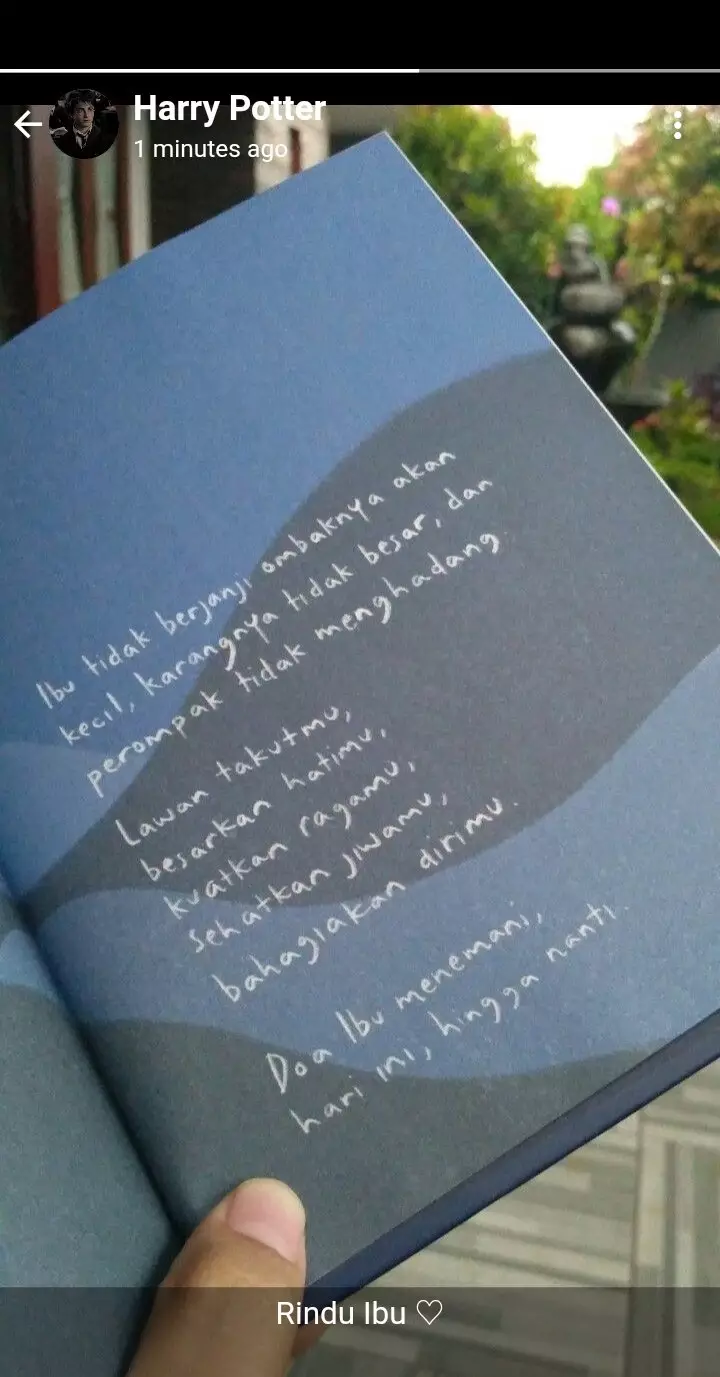 Harry Potter
1 minutes ago
Ibu tidak berjanji ombaknya akan
kecil, karangnya tidak besar, dan
perompak tidak menghadang.
Lawan takutmu,
besarkan hatimu,
kuatkan ragamu,
sehatkan jiwamu,
bahagiakan dirimu.
Doa Ibu menemani,
hari ini, hingga nanti.
Rindu Ibu ♡